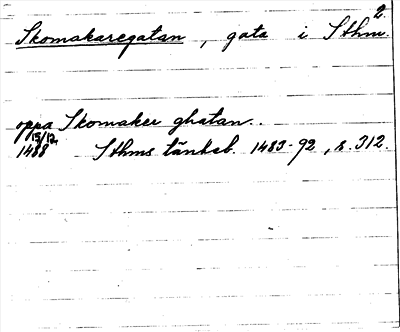 2.
Skomakaregatan, gata i Sthm.
oppa Skomaker ghatan..
15/12
1488 Sthms tänkeb. 1483-92, s. 312.